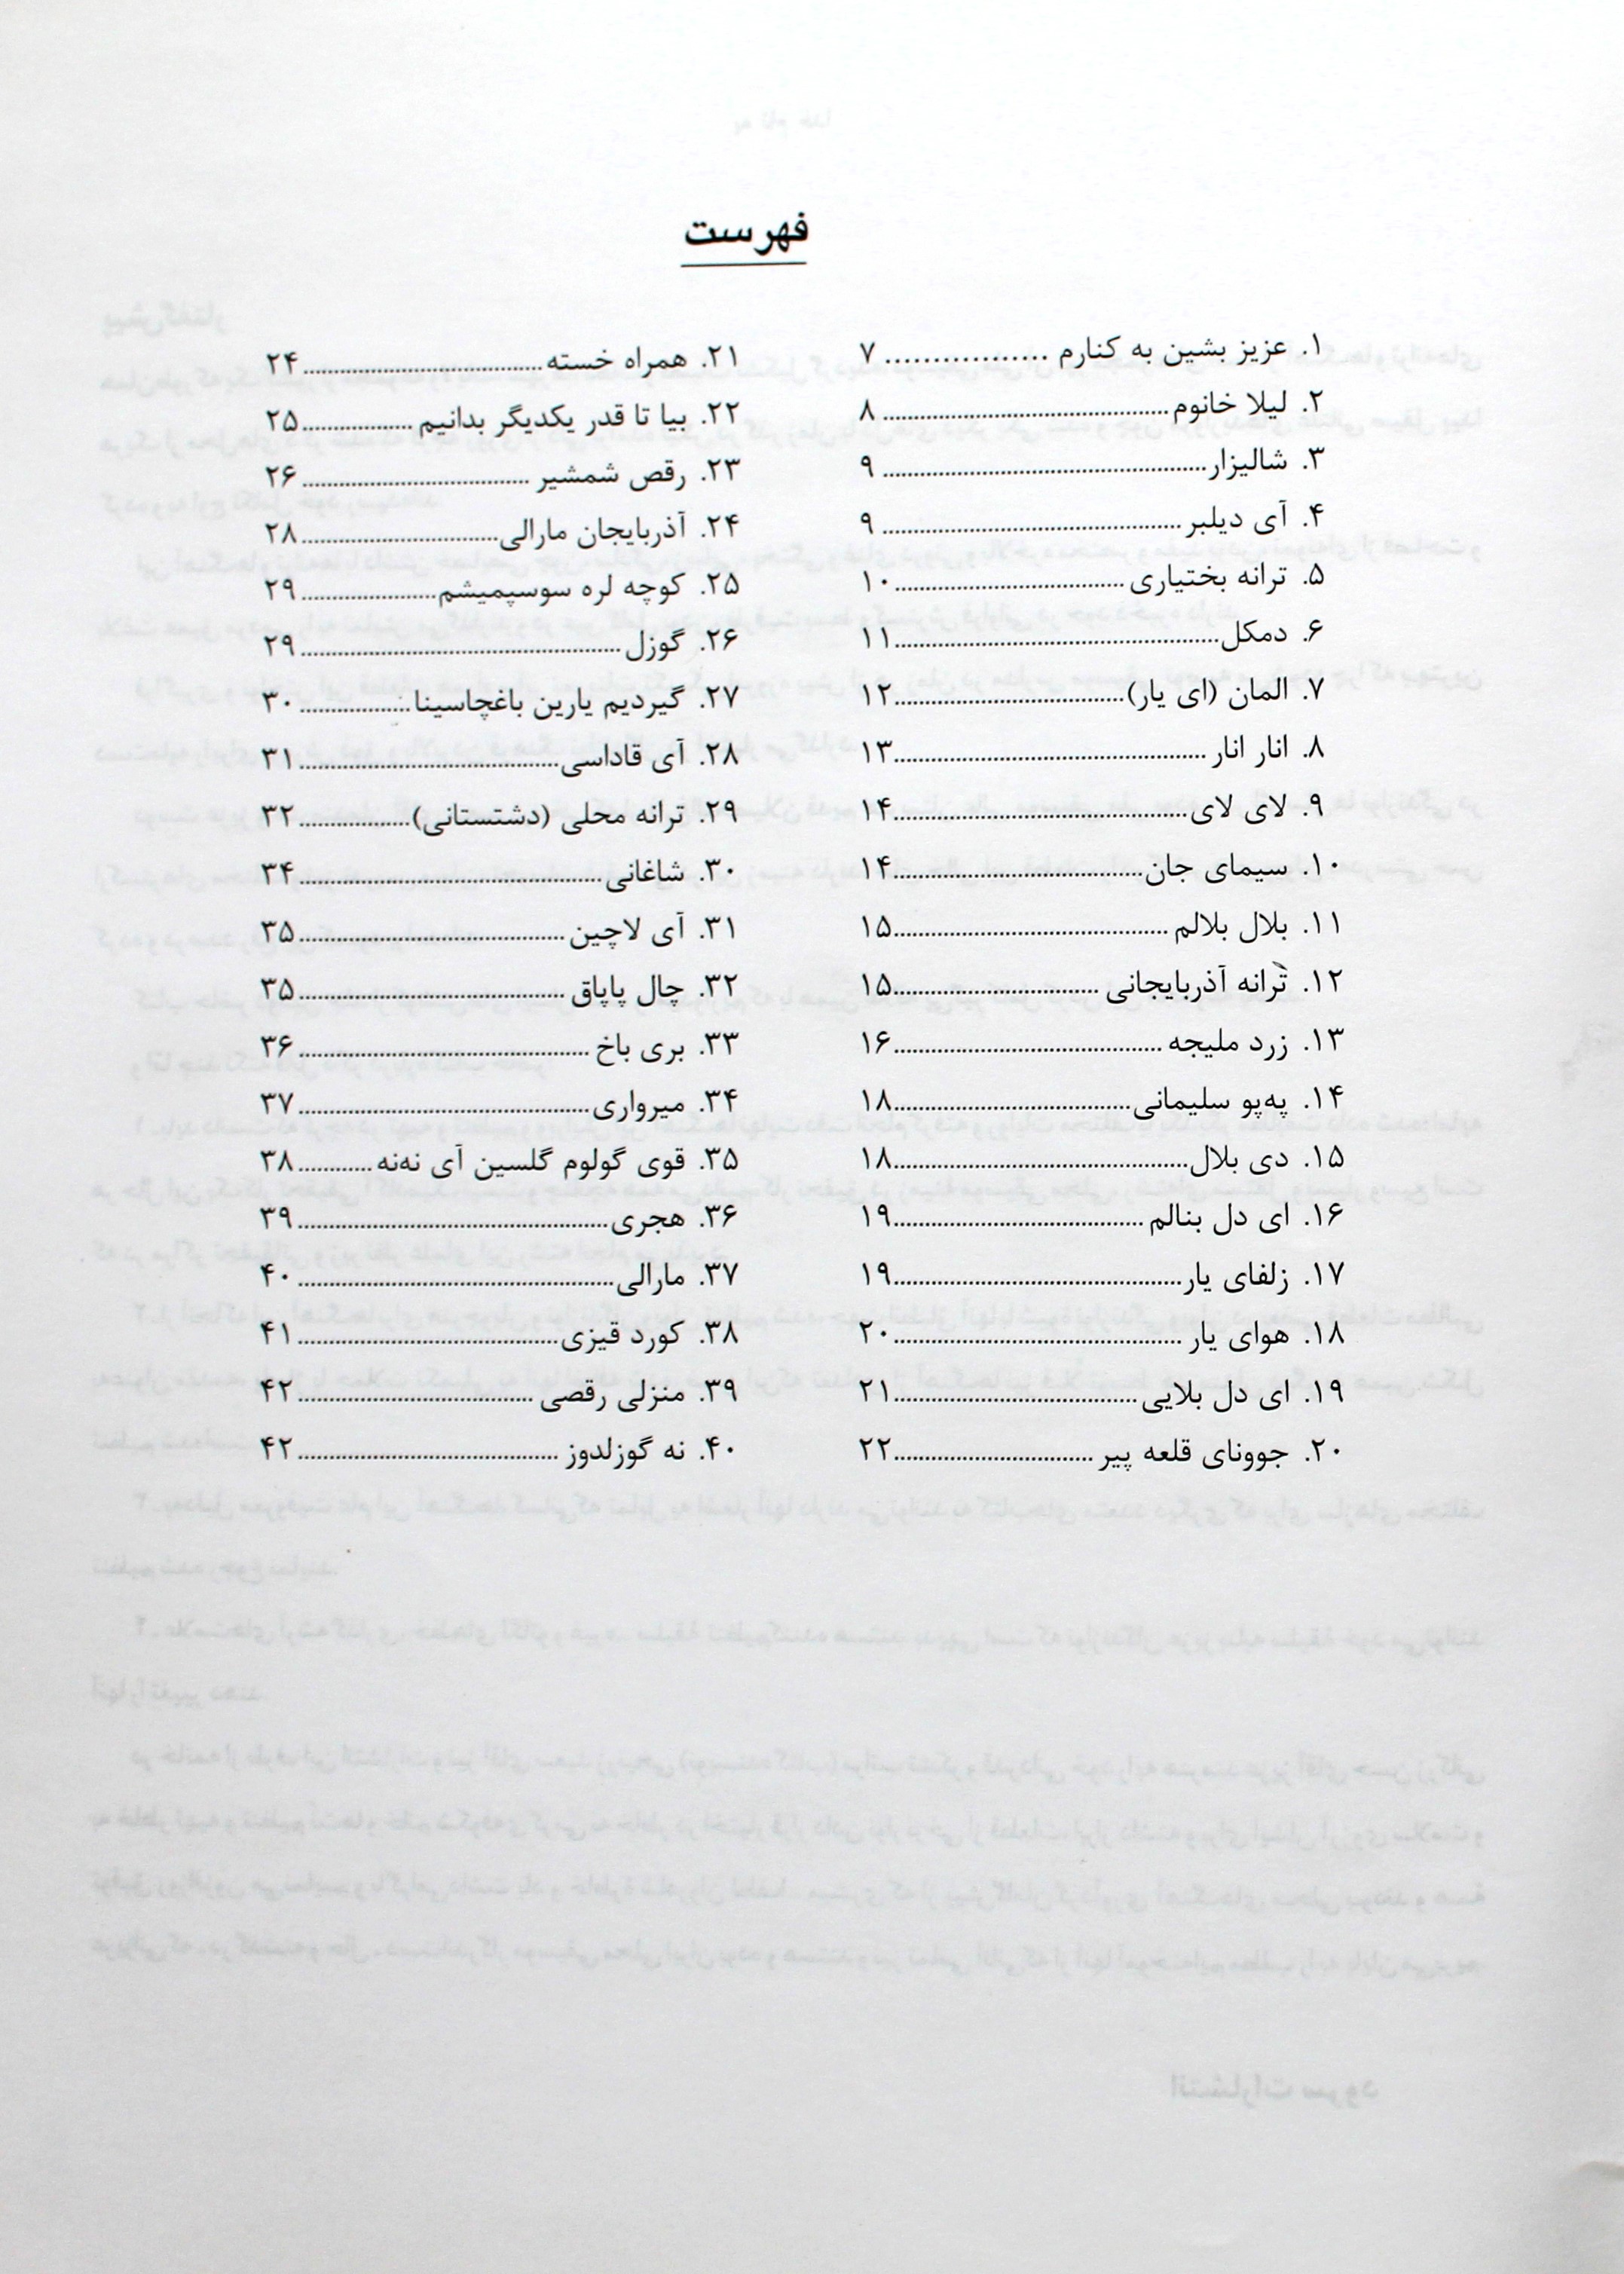 فهرست
۱. عزیز بشین به کنارم ................. ۷
۲. لیلا خانوم ................. ۸
۳. شالیزار ................. ۹
۴. آی دیلبر ................. ۹
۵. ترانه بختیاری ................. ۱۰
۶. دمکل ................. ۱۱
۷. المان (ای یار) ................. ۱۲
۸. انار انار ................. ۱۳
۹. لای لای ................. ۱۴
۱۰. سیمای جان ................. ۱۴
۱۱. بلال بلالم ................. ۱۵
۱۲. ترانه آذربایجانی ................. ۱۵
۱۳. زرد ملیجه ................. ۱۶
۱۴. په‌پو سلیمانی ................. ۱۸
۱۵. دی بلال ................. ۱۸
۱۶. ای دل بنالم ................. ۱۹
۱۷. زلفای یار ................. ۱۹
۱۸. هوای یار ................. ۲۰
۱۹. ای دل بلایی ................. ۲۱
۲۰. جوونای قلعه پیر ................. ۲۲
۲۱. همراه خسته ................. ۲۴
۲۲. بیا تا قدر یکدیگر بدانیم ................. ۲۵
۲۳. رقص شمشیر ................. ۲۶
۲۴. آذربایجان مارالی ................. ۲۸
۲۵. کوچه لره سوسپمیشم ................. ۲۹
۲۶. گوزل ................. ۲۹
۲۷. گیردیم یارین باغچاسینا ................. ۳۰
۲۸. آی قاداسی ................. ۳۱
۲۹. ترانه محلی (دشتستانی) ................. ۳۲
۳۰. شاغانی ................. ۳۴
۳۱. آی لاچین ................. ۳۵
۳۲. چال پاپاق ................. ۳۵
۳۳. بری باخ ................. ۳۶
۳۴. میرواری ................. ۳۷
۳۵. قوی گولوم گلسین آی نه‌نه ................. ۳۸
۳۶. هجری ................. ۳۹
۳۷. مارالی ................. ۴۰
۳۸. کورد قیزی ................. ۴۱
۳۹. منزلی رقصی ................. ۴۲
۴۰. نه گوزلدوز ................. ۴۲